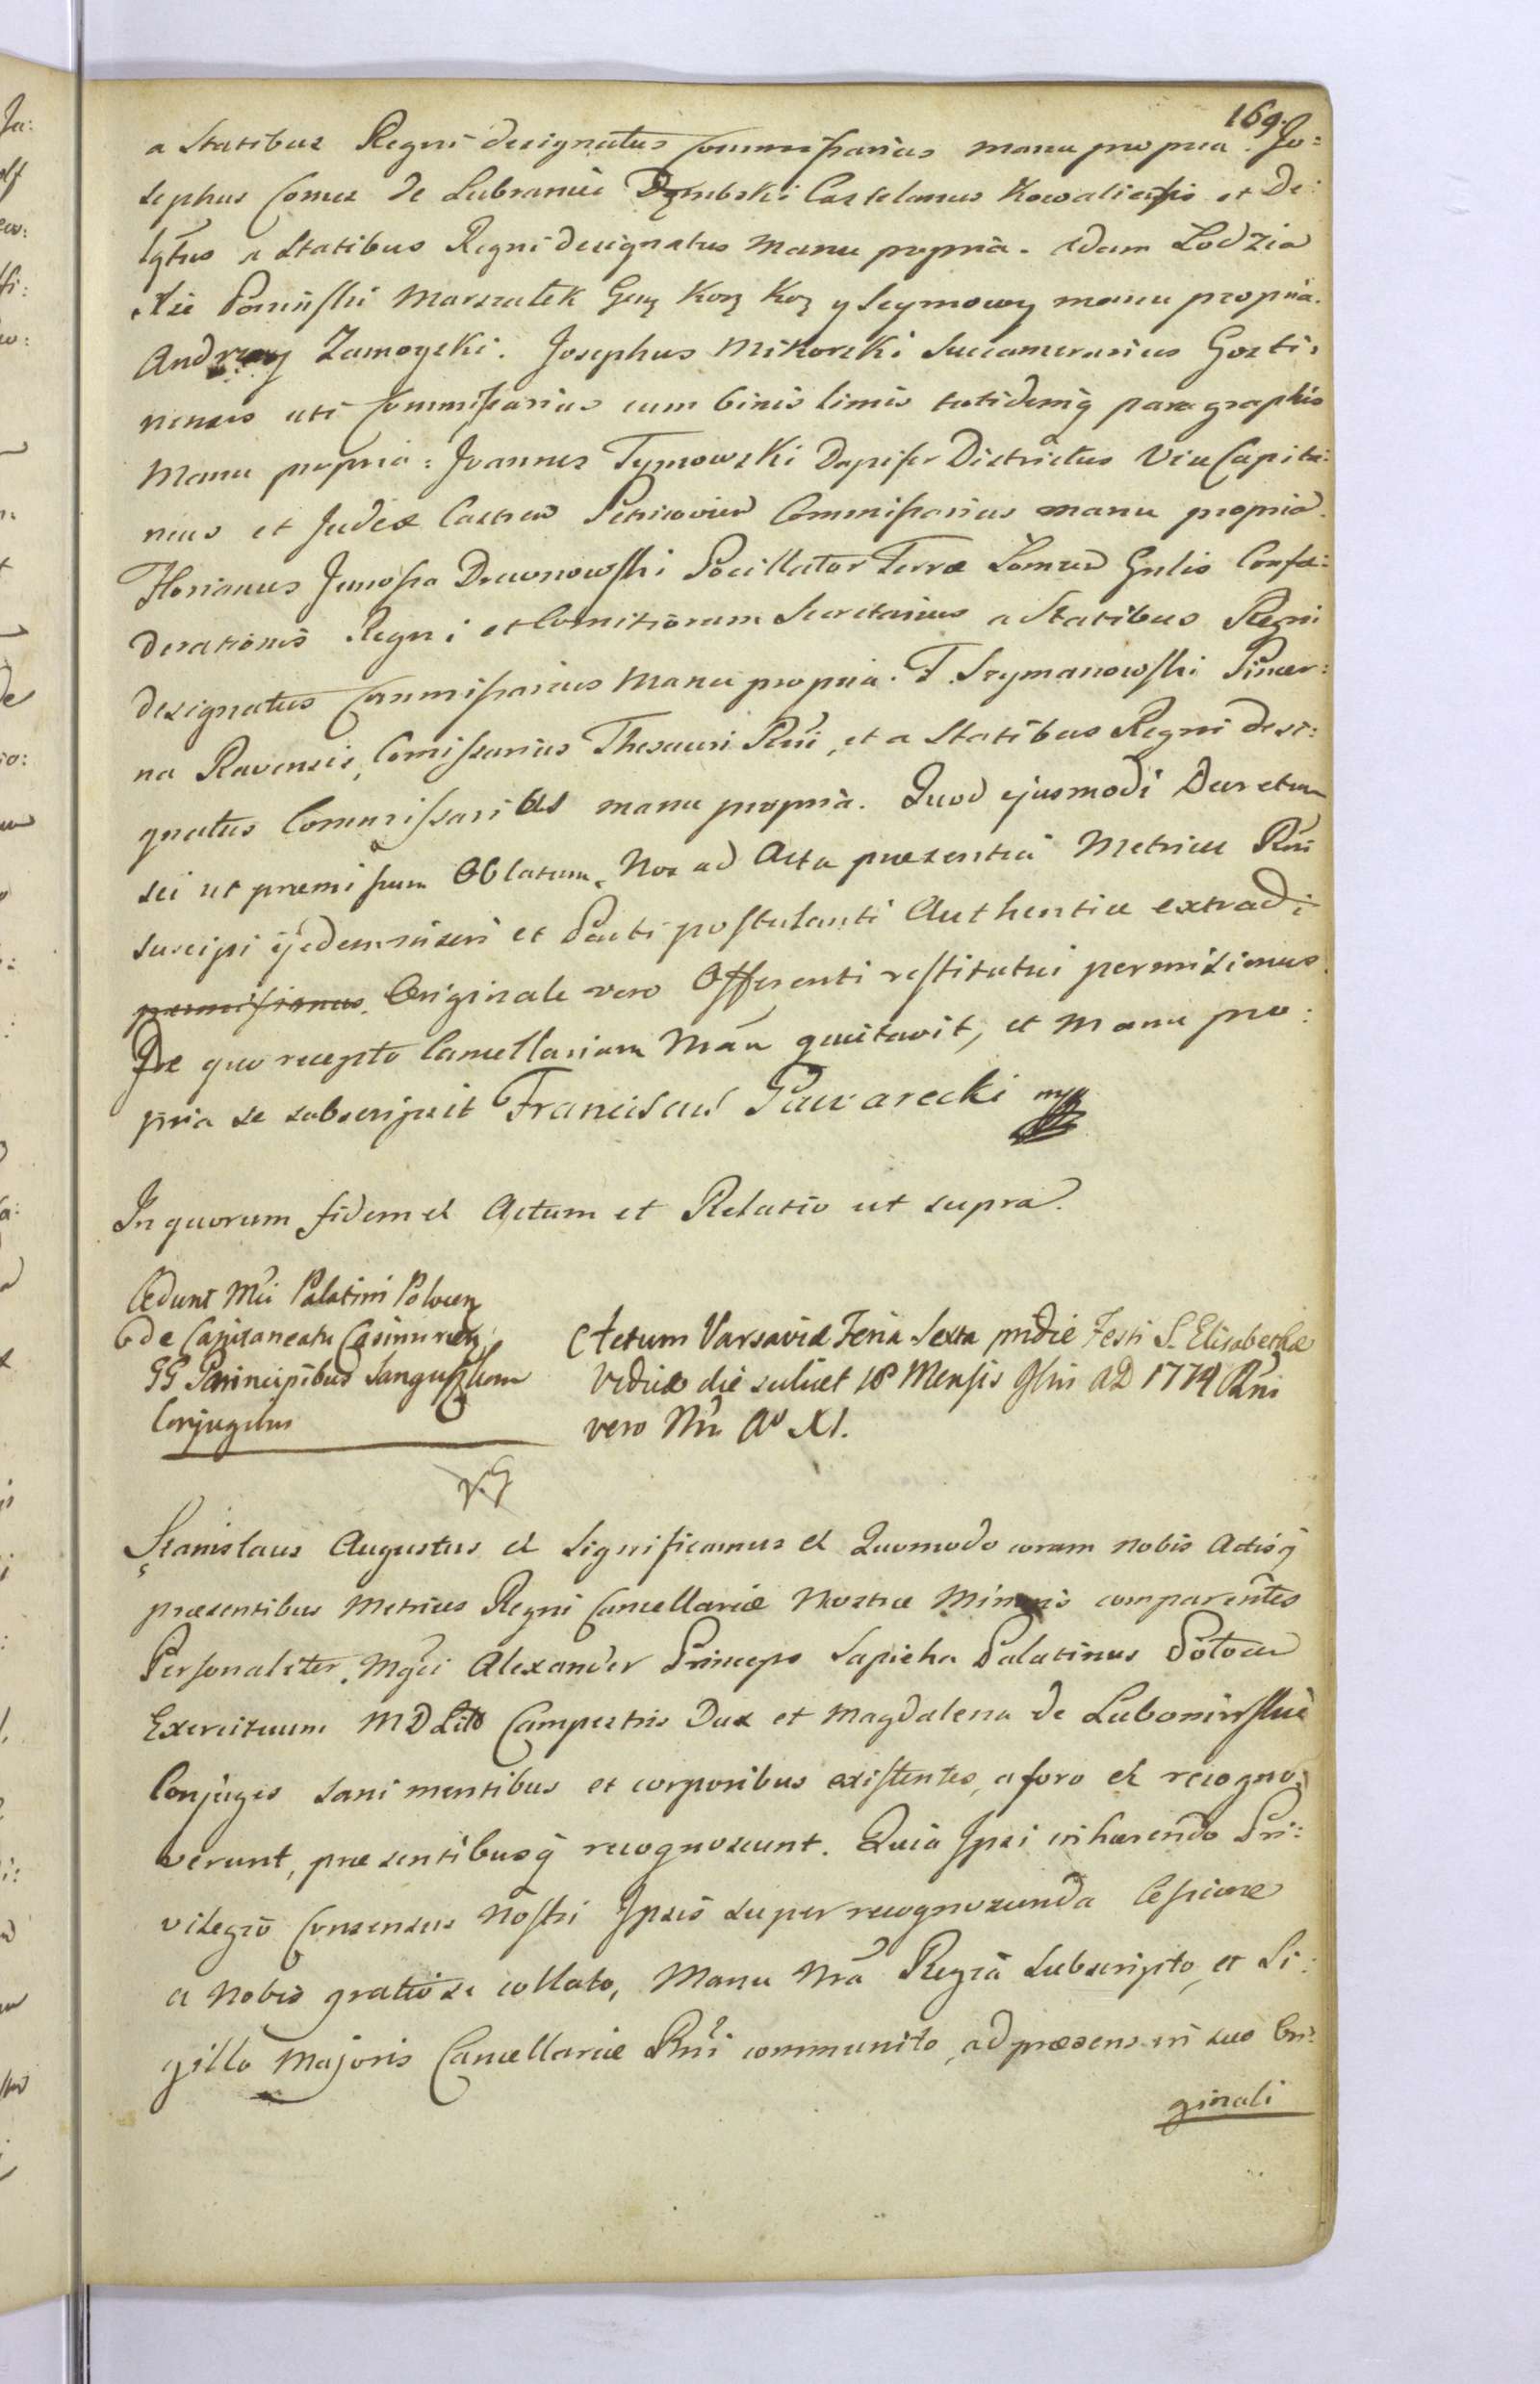 169.
a Statibus Regni designatus Commissarius manu propria. Jo:
sephus Comes de Lubraniec Dąmbski Castelanus Kowaliensis et De:
lgtus a Statibus Regni designatus Manu propria. Adam Lodzia
Xże Poniński Marszałek Gnỹ Korỹ Koỹ y Seymowy manu propria.
Andrzey Zamoyski. Josephus Mikorski Succamerarius Gosti:
nensis uti Commissarius cum binis limis totidemq̃ paragraphis
Manu propria: Joannes Tymowski Dapifer Districtus Vice Capita:
neus et Judex Castren Petricovien Commissarius manu propria.
Florianus Junosza Drewnowski Pocillator Terræ Lomzen Gnlis Confæ:
derationis Regni et Comitiorum Secretarius a Statibus Regni
designatus Commissarius Manu propria. T. Szymanowski Pincer:
na Ravensis, Comissarius Thesauri Rni, et a Statibus Regni desi:
gnatus Commissarius manu propria. Quod ejusmodi Decretum
sic ut premissum Oblatum, Nos ad Acta præsentia Metrices Rni
suscipi ijsdem inseri et Parti postulanti Authentice extradi
permisimus. Originale vero Offerenti restitui permisimus.
De quo recepto Cancellariam Nrãm quitavit, et Manu pro:
pria se subscripsit Franciscus Puwarecki mp
In quorum fidem et Actum et Relatio ut supra.
Cedunt Mci Palatini Polocen
de Capitaneatu Casimirien
GG Principibus Sanguszkom
Conjugibus
Actum Varsaviæ Feria Sexta pridie Festi S. Elisabethæ
Viduæ die scilicet 18 Mensis 9bris AD 1774 Rni
vero Nri Ao XI.
Stanislaus Augustus et Significamus et Quomodo coram nobis Actisq̃
præsentibus Metrices Regni Cancellariæ Nostræ Minoris comparentes
Personaliter. Mgci Alexander Princeps Sapieha Palatinus Polocen
Exercituum MDLitt Campestris Dux et Magdalena de Lubomirskie
Conjuges sani mentibus et corporibus existentes, a foro et recogno:
verunt, præsentibusq̃ recognoscunt. Quia Ipsi inhærendo Pri:
vilegio Consensus Nostri Ipsis super recognoscenda Cessione
a Nobis gratiose collato, Manu Nrã Regia subscripto, et Si:
gillo Majoris Cancellariæ Rni communito, ad præsens in suo Ori:
ginali